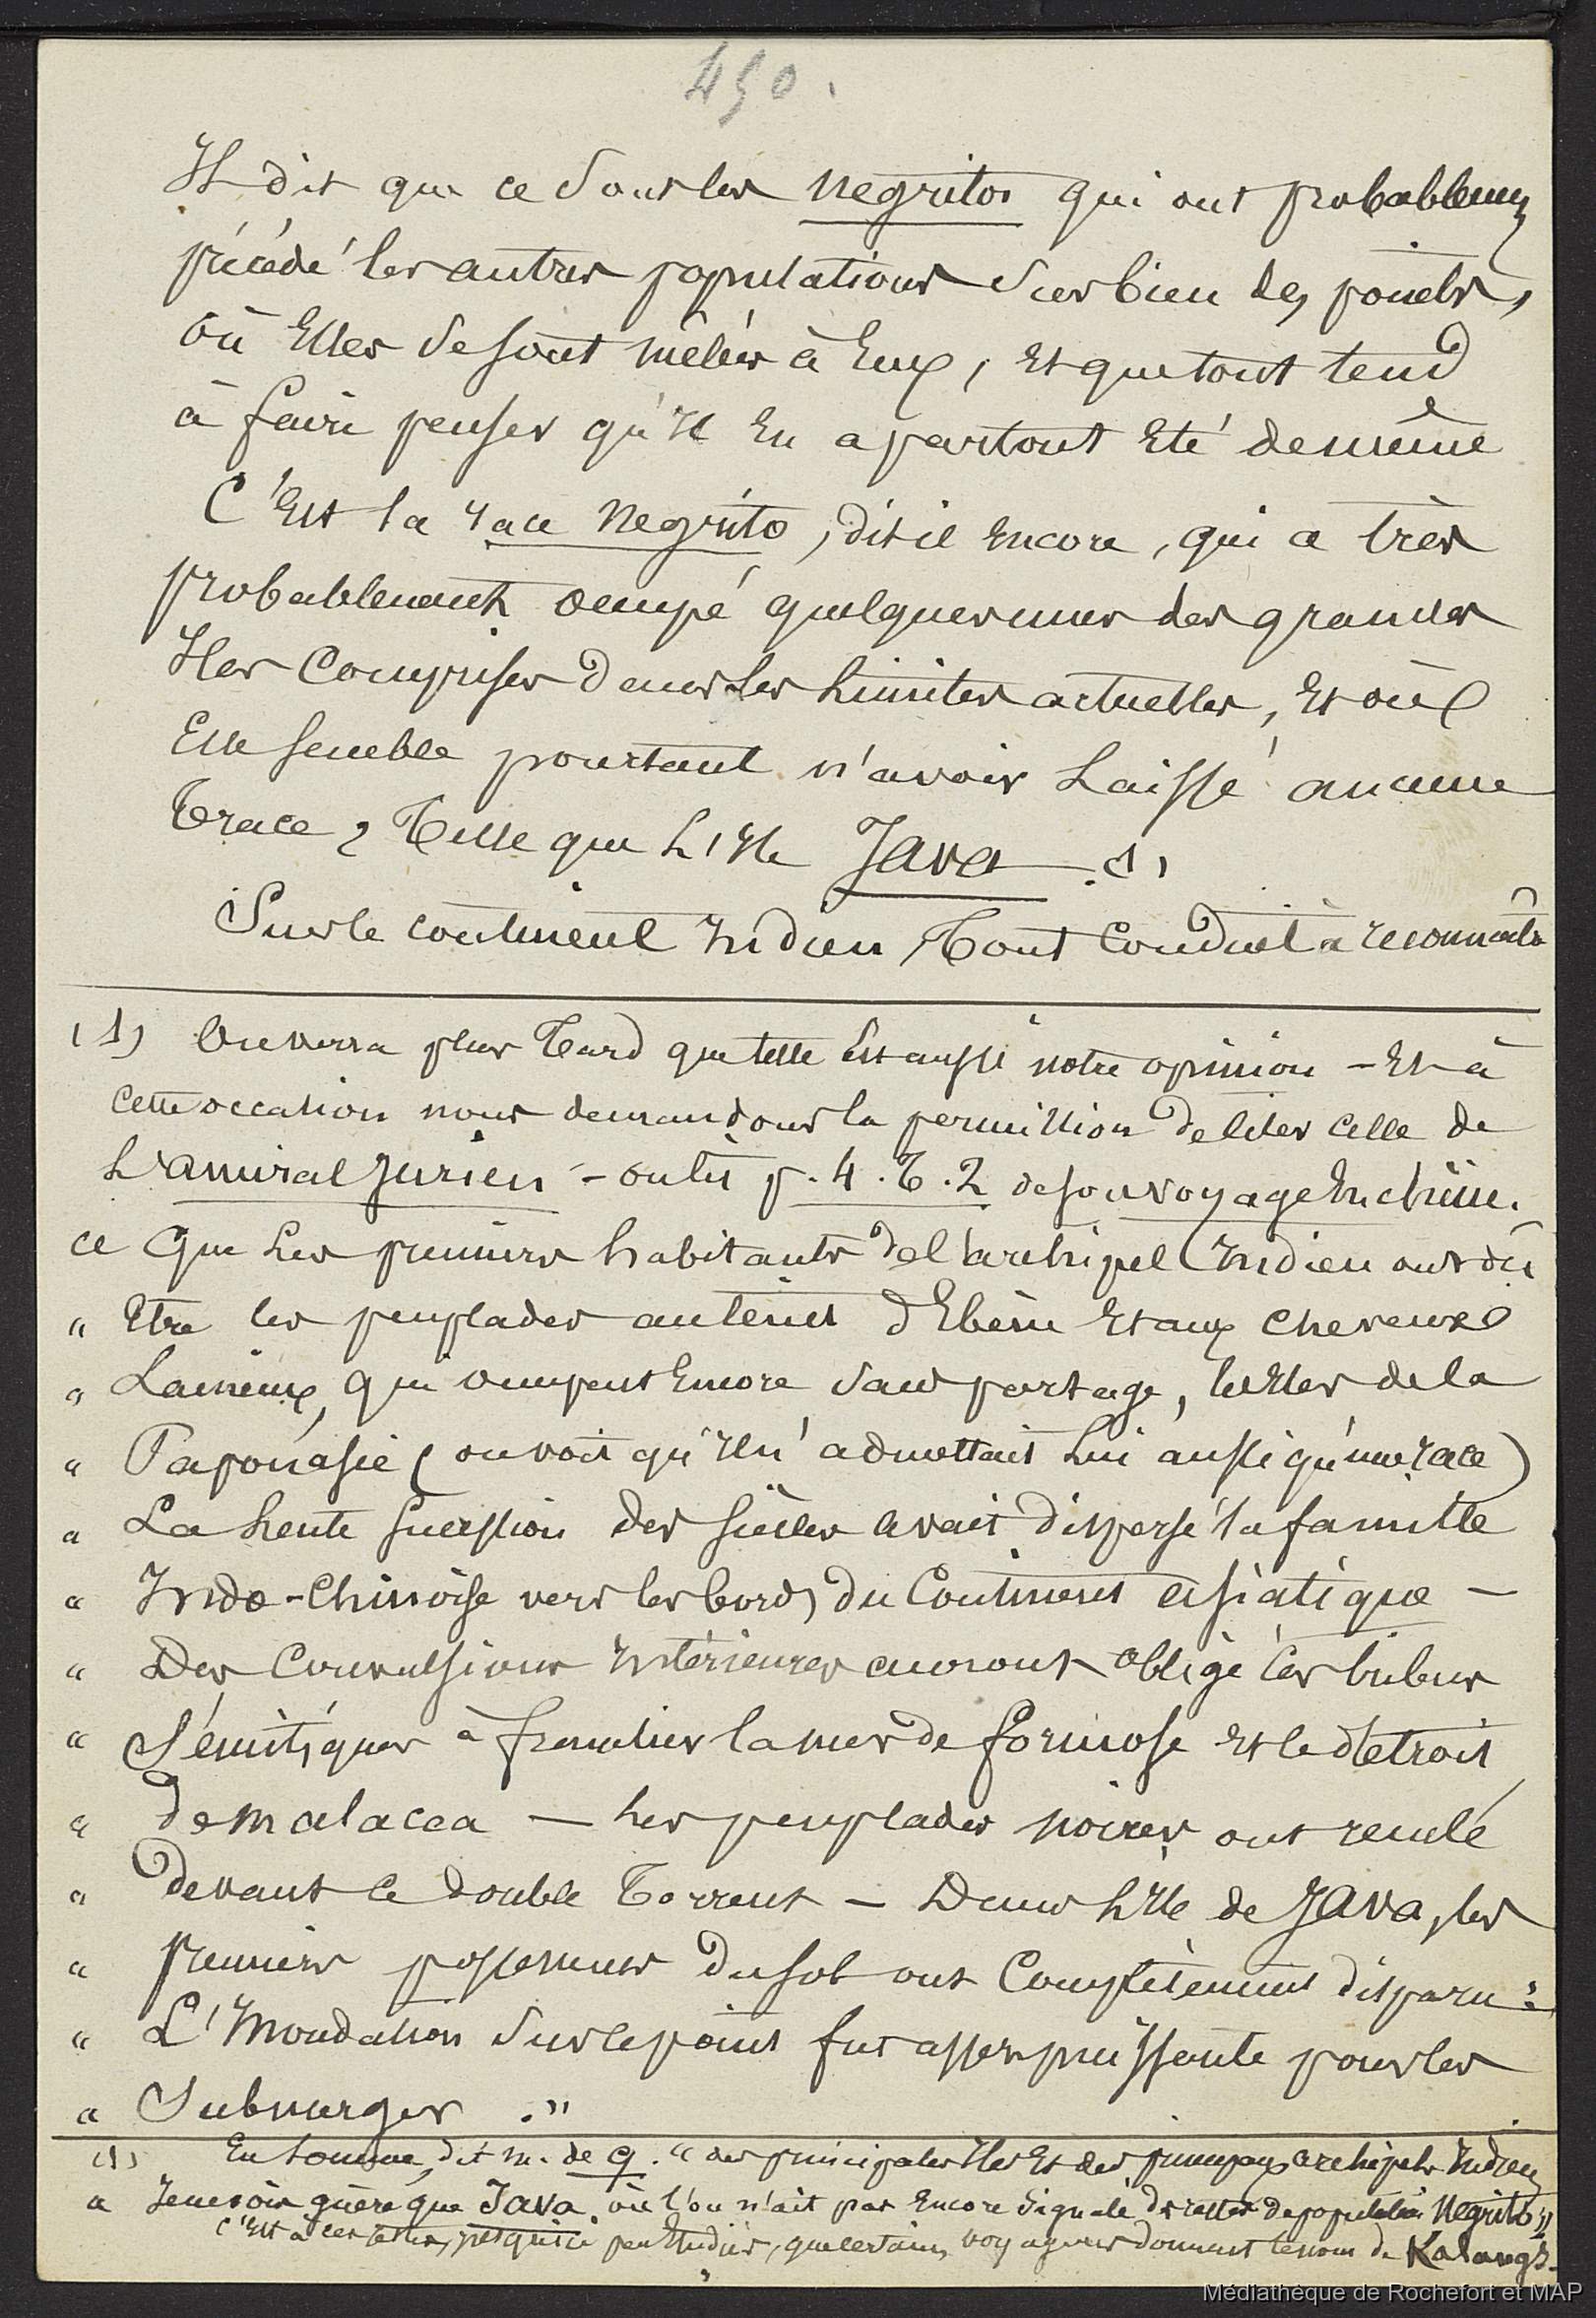 450.
Il dit que ce sont les Negritos qui ont probablemt
précédé les autres populations sur bien des points,
où Elles se sont mêlées à Eux, Et que tout tend
à faire penser qu'il En a partout Eté de même
C'Est la race Negrito, dit il Encore, qui a très
probablement occupé quelques unes des grandes
Iles Comprises dans les limites actuelles, Et où
Elle semble pourtant n'avoir Laissé aucune
Trace, Telle que L'Ile Java (1)
Sur le continent Indien, Tout Conduit à reconnaitre
(1) On verra plus Tard que telle Est aussi notre opinion – Et à
cette occasion nous demandons la permission de citer celle de
L'amiral Jurien – on lit p. 4. T. 2 de son voyage En chine.
Que Les premiers habitants de l'archipel Indien ont dû
" Etre les peuplades au teint d'Ebène Et aux cheveux
" Laineux, qui occupent Encore sans partage, les Iles de la
" Papouasie (on voit qu'il n'admettait Lui aussi qu'une race)
" La Lente succession des siècles avait dispersé la famille
" Indo-Chinoise vers les bords du Continent asiatique –
" Des Convulsions Intérieures auront obligé ces tribus
" Sémitiques à franchir la mer de formose Et le détroit
" de Malacca – Les peuplades noires ont reculé
" devant ce double Torrent – Dans L'Ile de Java, les
" premiers possesseurs du sol ont Complètement disparu :
" L'Inondation sur ce point fut assez puissante pour les
" Submerger ."
(1) En somme, dit M. de Q. " des principales Iles Et des principaux archipels Indiens
" Je ne vois guère que Java où l'on n'ait pas Encore signalé des restes de population Negrito "
C'Est à ces restes, jusqu'ici peu Etudiés, que certains voyageurs donnent le nom de Kalangs.
Médiathèque de Rochefort et MAP